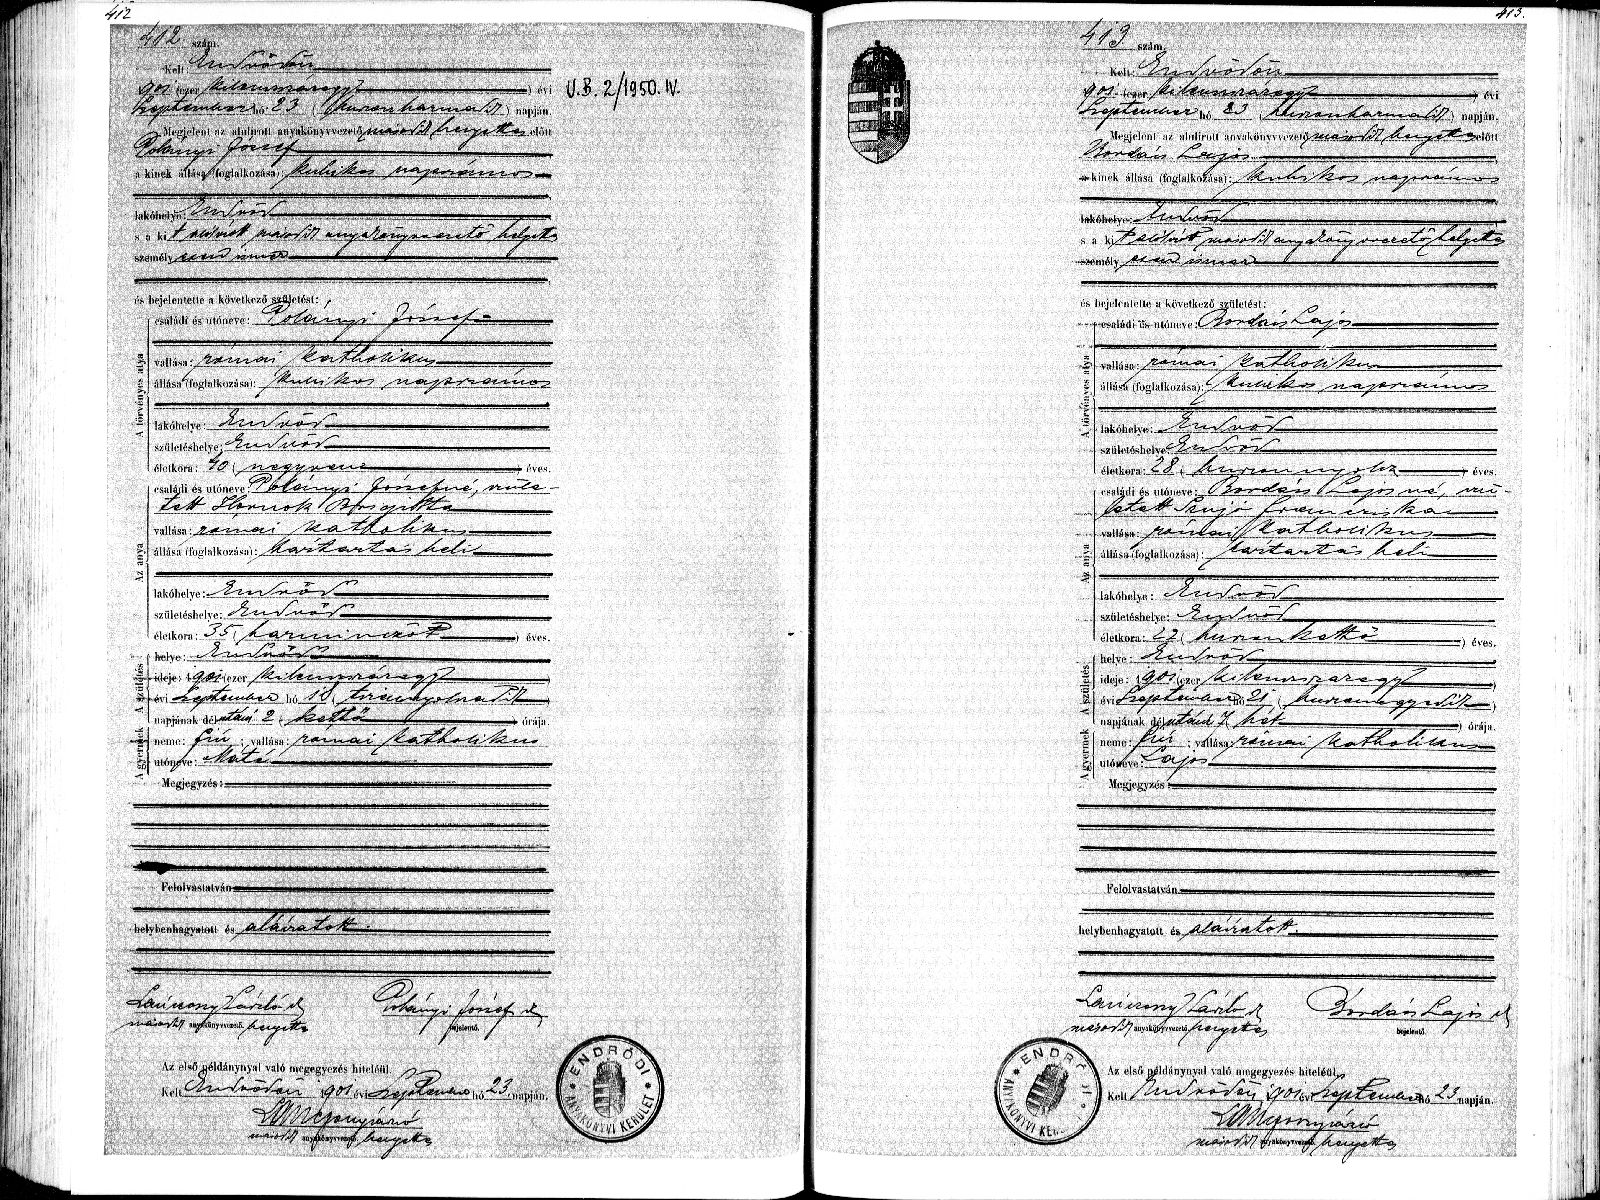 412
412 szám.
Kelt Endrődön
901. (ezer kilenczszázegy) évi
Szeptember hó 23 (huszonharmadik) napján.
Megjelent az alulirott anyakönyvvezető második helyettes előtt
Polányi József
a kinek állása (foglalkozása): kubikos napszámos
lakóhelye: Endrőd
s a kit alulirott második anyakönyvvezető helyettes
személyesen ismer
és bejelentette a következő születést:
A törvényes atya
családi és utóneve: Polányi József
vallása: római katholikus
állása (foglalkozása): kubikos napszámos
lakóhelye: Endrőd
születéshelye: Endrőd
életkora: 40 (negyven) éves.
Az anya
családi és utóneve: Polányi Józsefné, szüle-
tett Hornok Borgitta
vallása: római katholikus
állása (foglalkozása): háztartásbeli
lakóhelye: Endrőd
születéshelye: Endrőd
életkora: 35 (harminczöt) éves.
A gyermek A születés
helye: Endrőd
ideje: 1901. (ezer kilenczszázegy)
évi Szeptember hó 18 (tizennyolczadik)
napjának délutáni 2 (kettő) órája.
neme: fiú; vallása: római katholikus
utóneve: Máté
Megjegyzés:
Felolvastatván
helybenhagyatott és aláiratott.
Lanczonyi László
Polányi József
második anyakönyvvezető helyettes
bejelentő.
Az első példánynyal való megegyezés hiteléül.
Kelt Endrődön, 1901. évi Szeptember hó 23. napján.
második anyakönyvvezető helyettes
U.B. 2/1950. IV.
ENDRŐDI
ANYAKÖNYVI KERÜLET
413.
413 szám.
Kelt: Endrődön
901. (ezer kilenczszázegy) évi
Szeptember hó 23 (huszonharmadik) napján.
Megjelent az alulirott anyakönyvvezető második helyettes előtt
Bordás Lajos
a kinek állása (foglalkozása): kubikos napszámos
lakóhelye: Endrőd
s a kit alulirott második anyakönyvvezető helyettes
személyesen ismer
és bejelentette a következő születést:
A törvényes atya
családi és utóneve: Bordás Lajos
vallása: római katholikus
állása (foglalkozása): kubikos napszámos
lakóhelye: Endrőd
születéshelye Endrőd
életkora: 28 (huszonnyolcz) éves.
Az anya
családi és utóneve: Bordás Lajosné, szü-
letett Szujó Francziska
vallása: római katholikus
állása (foglalkozása): háztartásbeli
lakóhelye: Endrőd
születéshelye: Endrőd
életkora: 22 (huszonkettő) éves.
A gyermek A születés
helye: Endrőd
ideje: 1901. (ezer kilenczszázegy)
évi Szeptember hó 21 (huszonegyedik)
napjának délutáni 7 (hét) órája.
neme: fiú; vallása: római katholikus
utóneve: Lajos
Megjegyzés:
Felolvastatván
helybenhagyatott és aláiratott.
Lanczonyi László
Bordás Lajos
második anyakönyvvezető helyettes
bejelentő.
Az első példánynyal való megegyezés hiteléül.
Kelt Endrődön, 1901. évi Szeptember hó 23 napján.
második anyakönyvvezető helyettes
ENDRŐDI
ANYAKÖNYVI KERÜLET